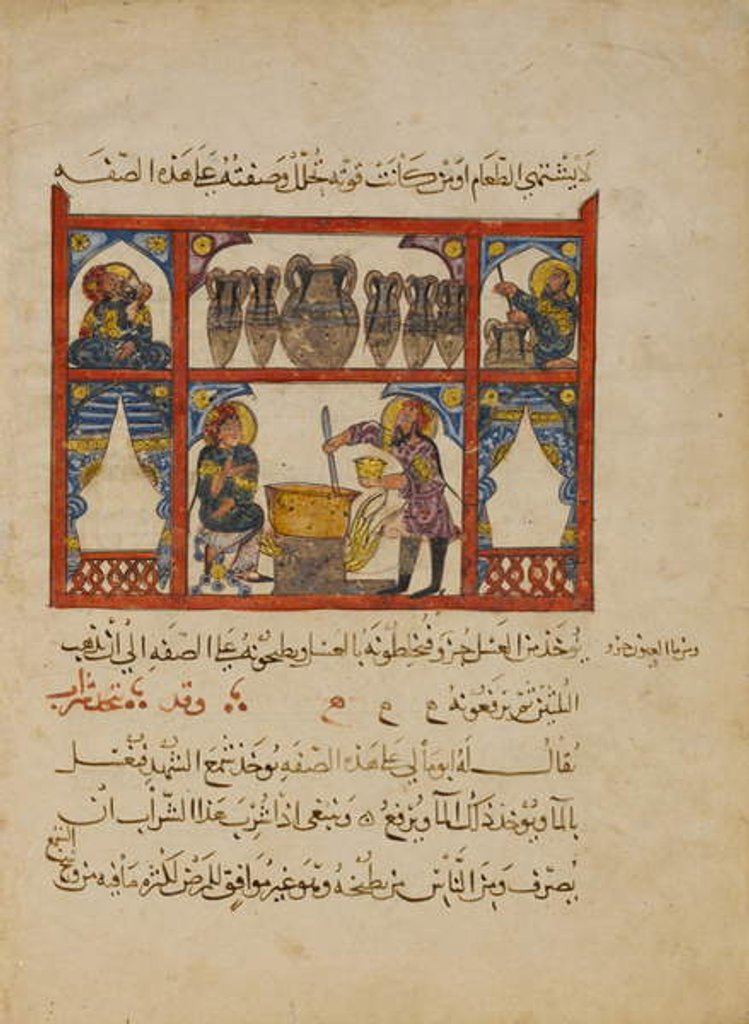 لا يشتهي الطعام او من كانت قوته تحلل وصفته على هذه الصفه
يوخذ من العسل جزو فتخلطونه بالعسل ويطبخونه على الصفه الي ان يذهب
ومن ما جزو
الثلثين ثم يرفعونه وقد يتخذ شراب
يقال له ابومالي على هذه الصفه يوخذ شمع الشهد فيغسل
بالما ويوخذ ذلك الما ويرفع وينبغي اذا شرب هذا الشراب ان
يصرف ومن الناس من يطبخه وهو غير موافق للمرض لكثره ما فيه من وسخ
الشمع